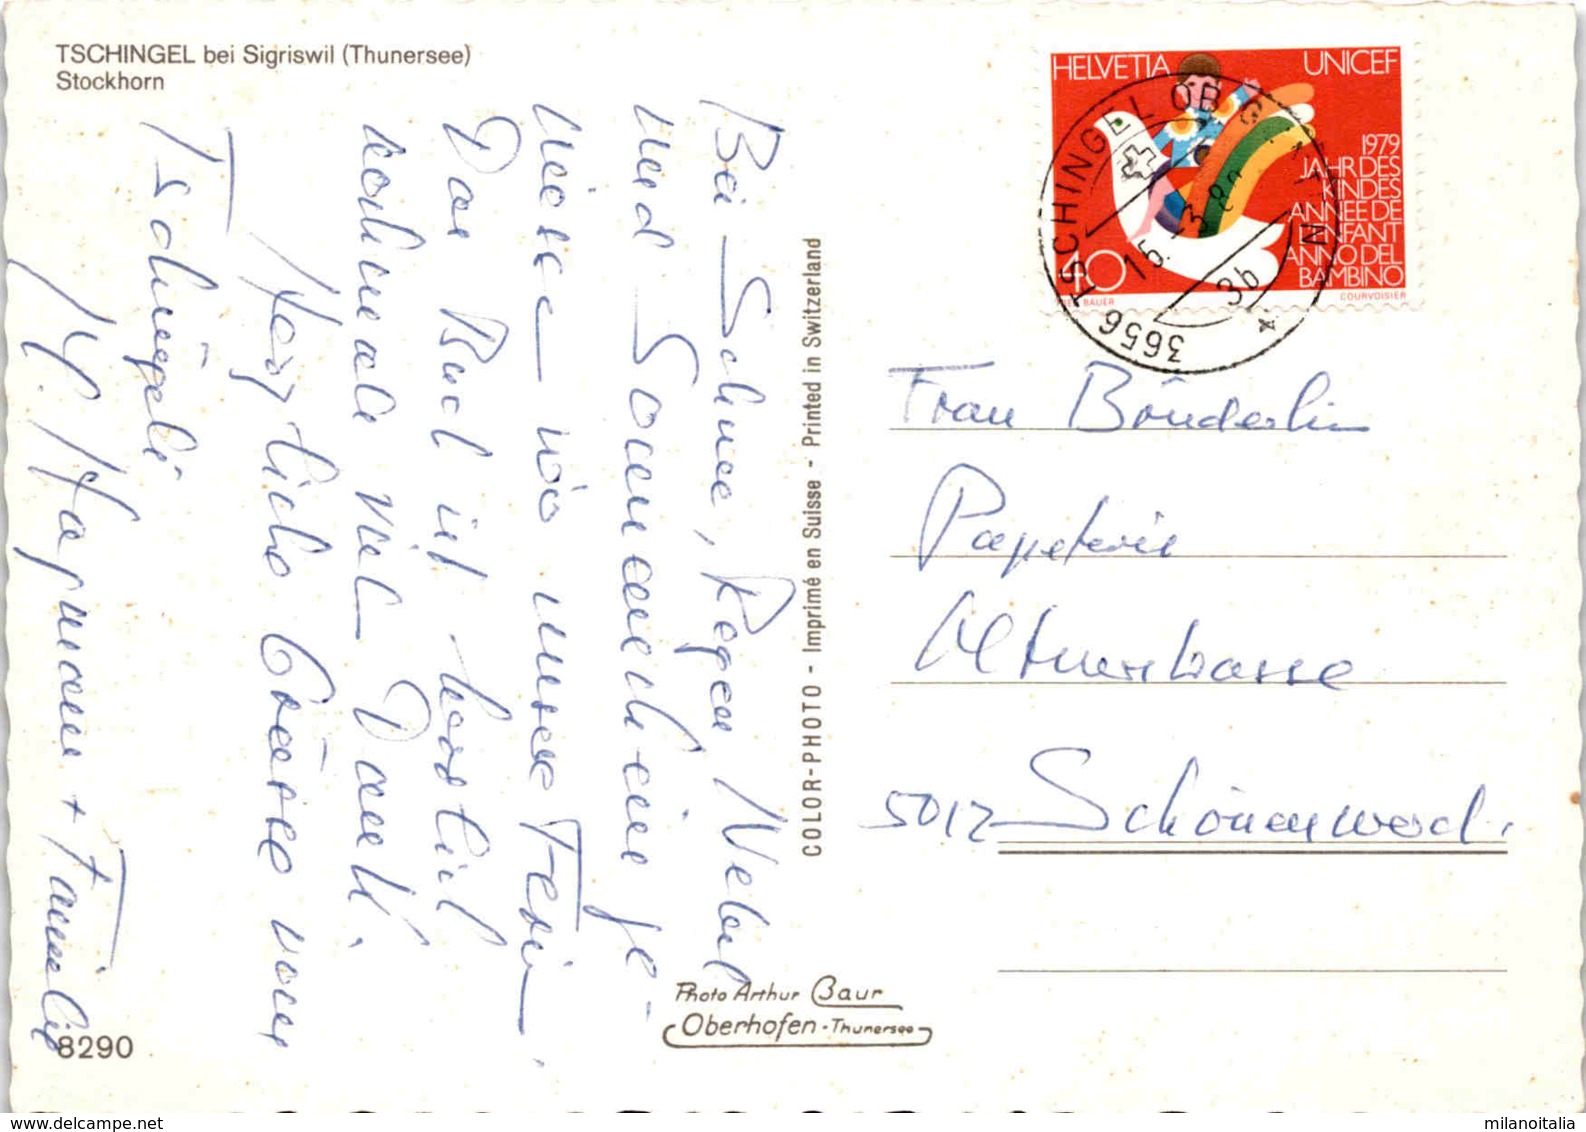 TSCHINGEL bei Sigriswil (Thunersee)
Stockhorn
Bei Schnee, Regen Nebel
und Sonnenschein ge-
niessen wir unsere Ferien.
Das Buch ist köstlich
nochmals viel Dank.
Herzliche Grüsse vom
Tschingeli
M. Hagmann + Familie
8290
COLOR-PHOTO - Imprimé en Suisse - Printed in Switzerland
Photo Arthur Baur
Oberhofen - Thunersee
HELVETIA UNICEF
1979
JAHR DES
KINDES
ANNEE DE
L'ENFANT
ANNO DEL
BAMBINO
40
COURVOISIER
3656 TSCHINGEL OB GUNTEN
15.-3.80
Frau Bründerlin
Papeterie
5012 Schönenwerd.
milanoitalia
www.delcampe.net